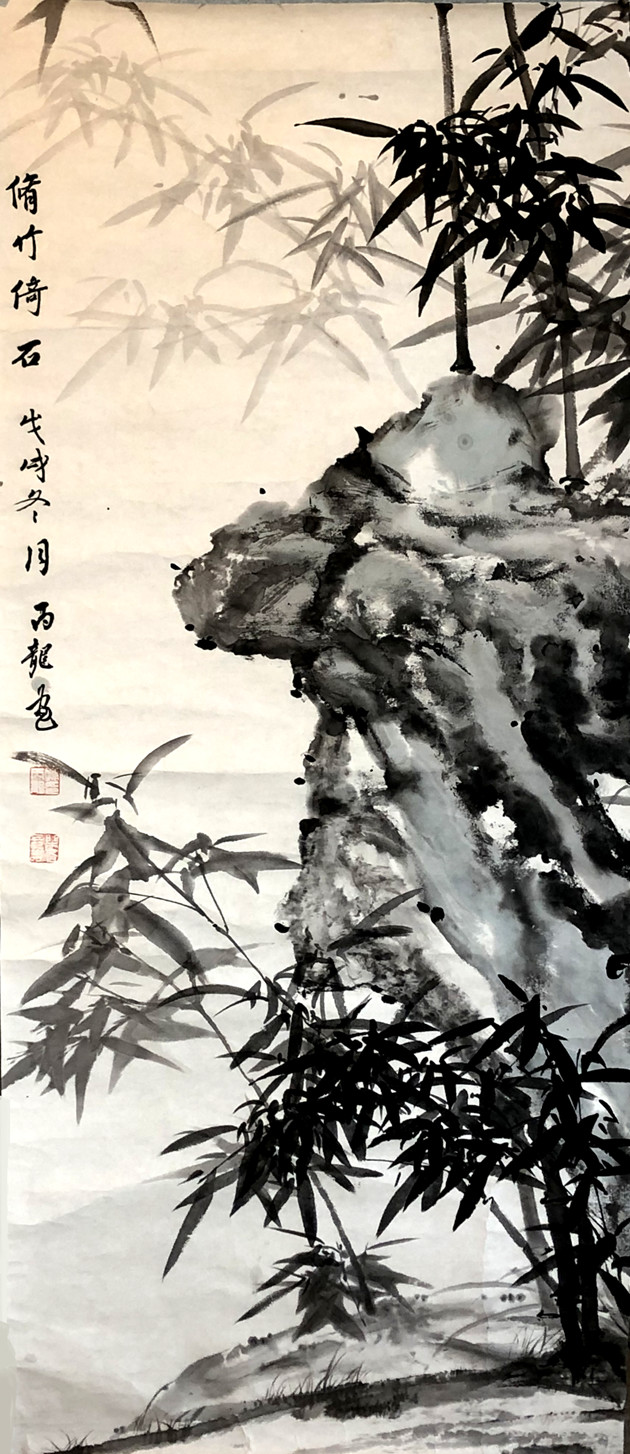 脩竹倚石 戊戌冬月 丙龍画